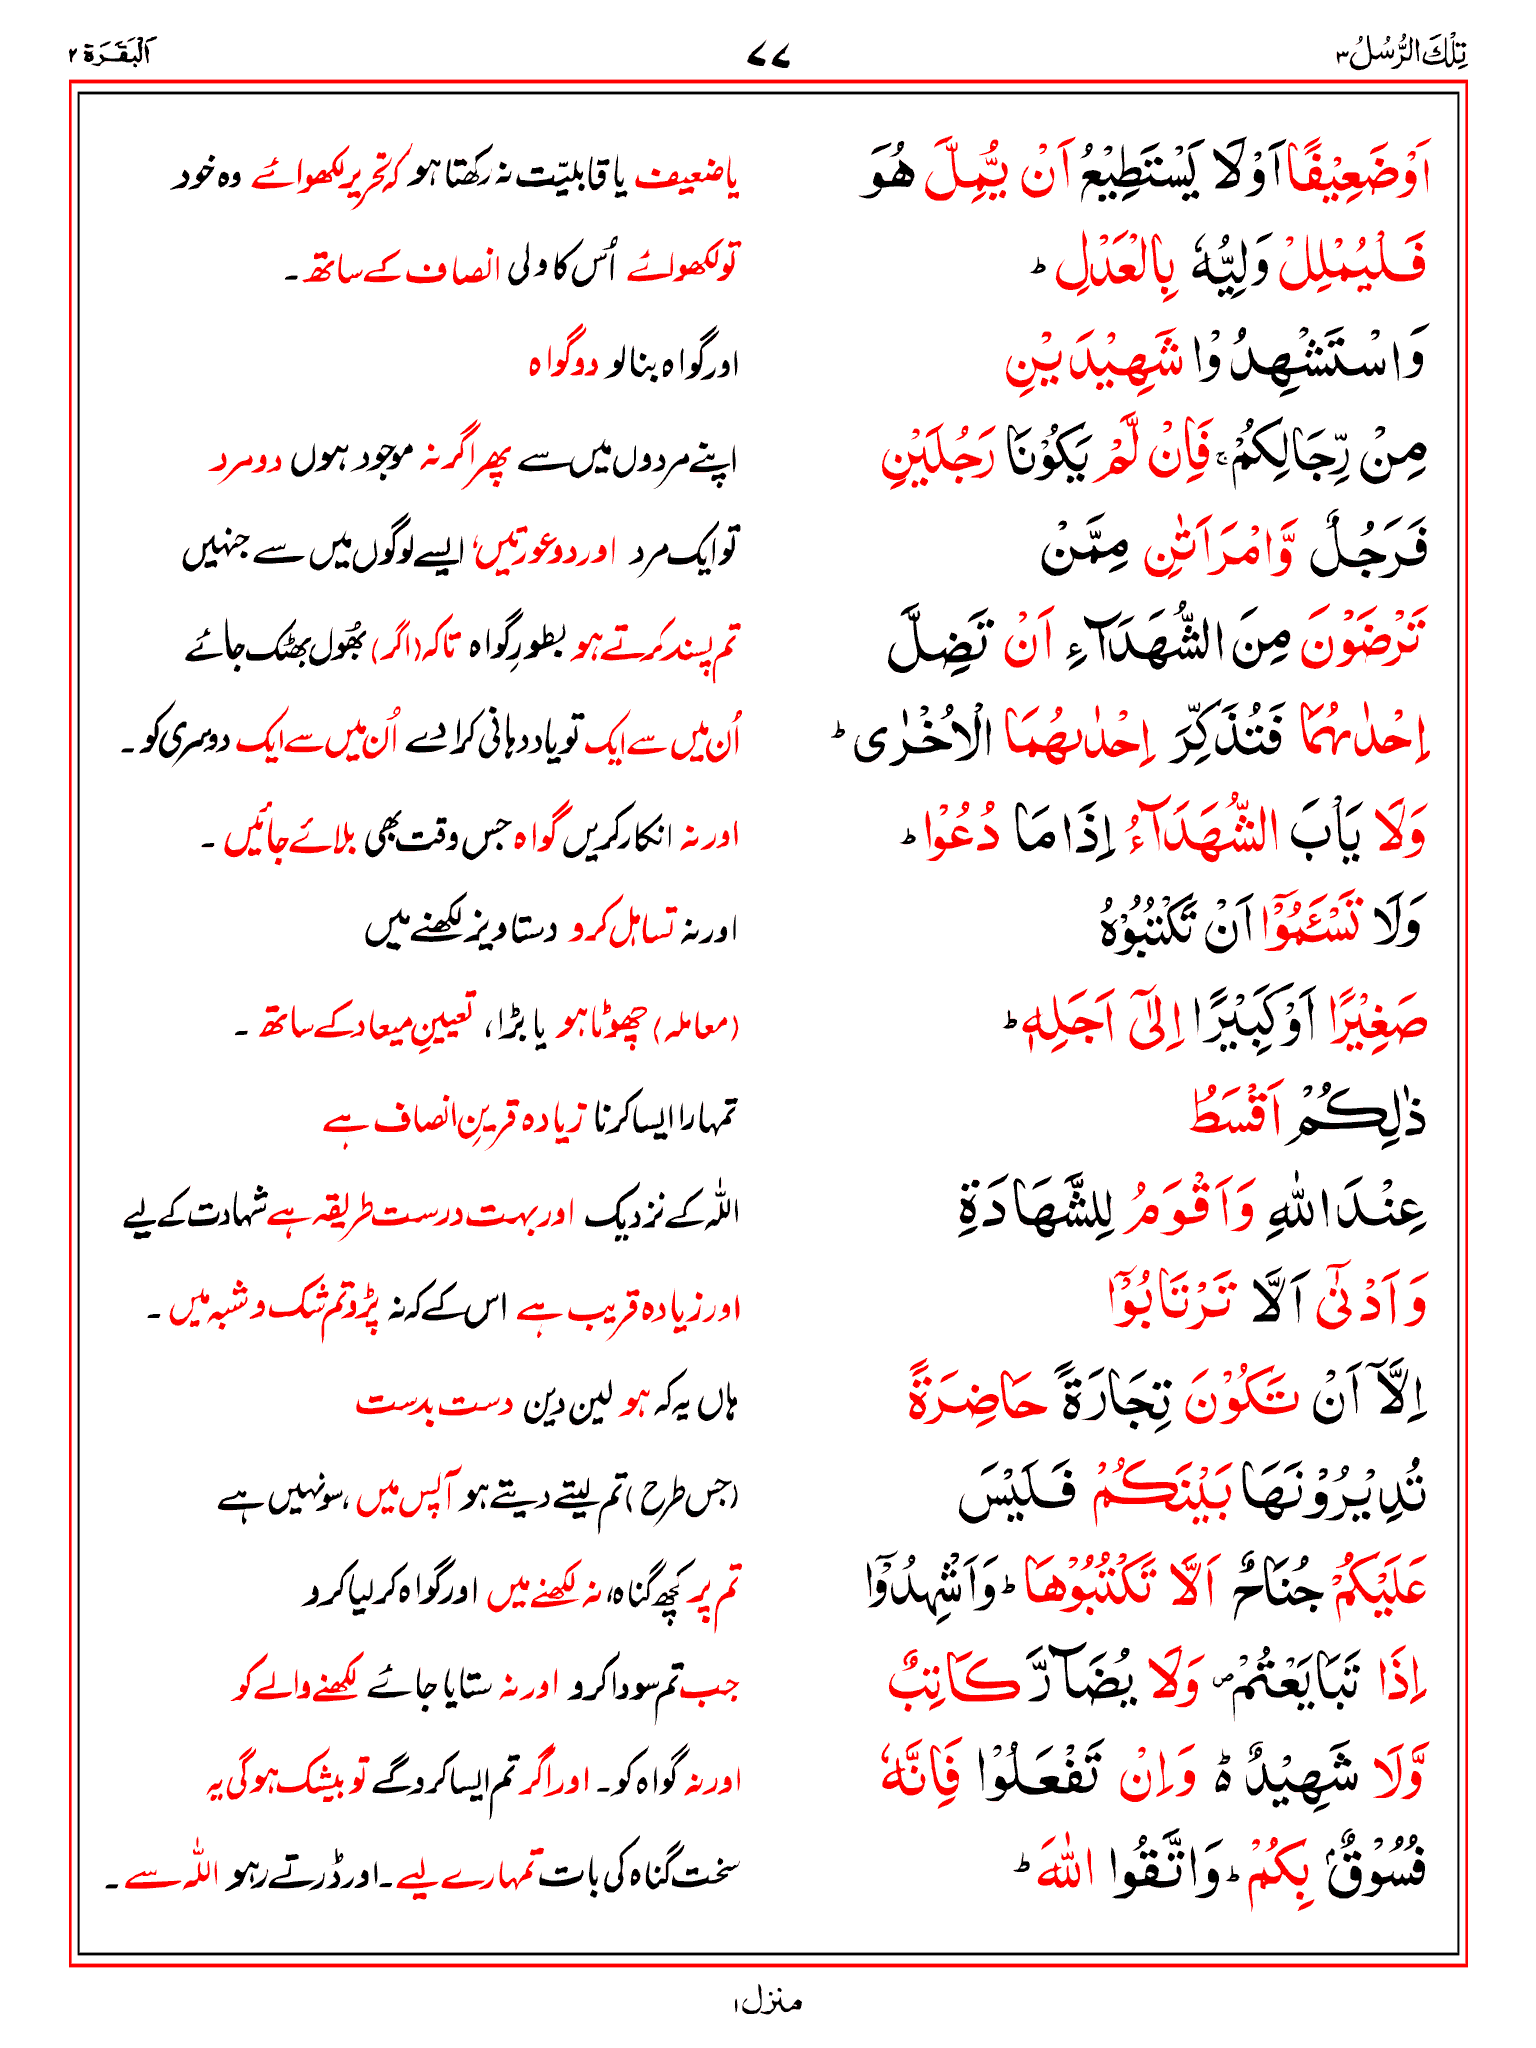 تِلْكَ الرُّسُلُ ٣ ٧٧ اَلْبَقَرَة ٢
اَوْ ضَعِيْفًا اَوْ لَا يَسْتَطِيْعُ اَنْ يُّمِلَّ هُوَ یا ضعیف یا قابلیّت نہ رکھتا ہو کہ تحریر لکھوائے وہ خود
فَلْيُمْلِلْ وَلِيُّهٗ بِالْعَدْلِ ؕ تو لکھوائے اُس کا ولی انصاف کے ساتھ ۔
وَاسْتَشْهِدُوْا شَهِيْدَيْنِ اور گواہ بنالو دو گواہ
مِنْ رِّجَالِكُمْ ۚ فَاِنْ لَّمْ يَكُوْنَا رَجُلَيْنِ اپنے مردوں میں سے پھر اگر نہ موجود ہوں دو مرد
فَرَجُلٌ وَّامْرَاَتٰنِ مِمَّنْ تو ایک مرد اور دو عورتیں، ایسے لوگوں میں سے جنہیں
تَرْضَوْنَ مِنَ الشُّهَدَآءِ اَنْ تَضِلَّ تم پسند کرتے ہو بطورِ گواہ تاکہ (اگر) بھُول بھٹک جائے
اِحْدٰىهُمَا فَتُذَكِّرَ اِحْدٰىهُمَا الْاُخْرٰى ؕ اُن میں سے ایک تو یاد دہانی کرا دے اُن میں سے ایک دوسری کو ۔
وَلَا يَاْبَ الشُّهَدَآءُ اِذَا مَا دُعُوْا ؕ اور نہ انکار کریں گواہ جس وقت بھی بلائے جائیں ۔
وَلَا تَسْـَٔمُوْٓا اَنْ تَكْتُبُوْهُ اور نہ تساہل کرو دستاویز لکھنے میں
صَغِيْرًا اَوْ كَبِيْرًا اِلٰٓى اَجَلِهٖ ؕ (معاملہ) چھوٹا ہو یا بڑا، تعیینِ میعاد کے ساتھ ۔
ذٰلِكُمْ اَقْسَطُ تمہارا ایسا کرنا زیادہ قرینِ انصاف ہے
عِنْدَ اللّٰهِ وَاَقْوَمُ لِلشَّهَادَةِ اللہ کے نزدیک اور بہت درست طریقہ ہے شہادت کے لیے
وَاَدْنٰٓى اَلَّا تَرْتَابُوْٓا اور زیادہ قریب ہے اس کے کہ نہ پڑو تم شک و شبہ میں ۔
اِلَّآ اَنْ تَكُوْنَ تِجَارَةً حَاضِرَةً ہاں یہ کہ ہو لین دین دست بدست
تُدِيْرُوْنَهَا بَيْنَكُمْ فَلَيْسَ (جس طرح) تم لیتے دیتے ہو آپس میں، سو نہیں ہے
عَلَيْكُمْ جُنَاحٌ اَلَّا تَكْتُبُوْهَا ؕ وَاَشْهِدُوْٓا تم پر کچھ گناہ، نہ لکھنے میں اور گواہ کر لیا کرو
اِذَا تَبَايَعْتُمْ ۪ وَلَا يُضَآرَّ كَاتِبٌ جب تم سودا کرو اور نہ ستایا جائے لکھنے والے کو
وَّلَا شَهِيْدٌ ۬ؕ وَاِنْ تَفْعَلُوْا فَاِنَّهٗ اور نہ گواہ کو۔ اور اگر تم ایسا کرو گے تو بیشک ہوگی یہ
فُسُوْقٌۢ بِكُمْ ؕ وَاتَّقُوا اللّٰهَ ؕ سخت گناہ کی بات تمہارے لیے ۔ اور ڈرتے رہو اللہ سے ۔
منزل ۱